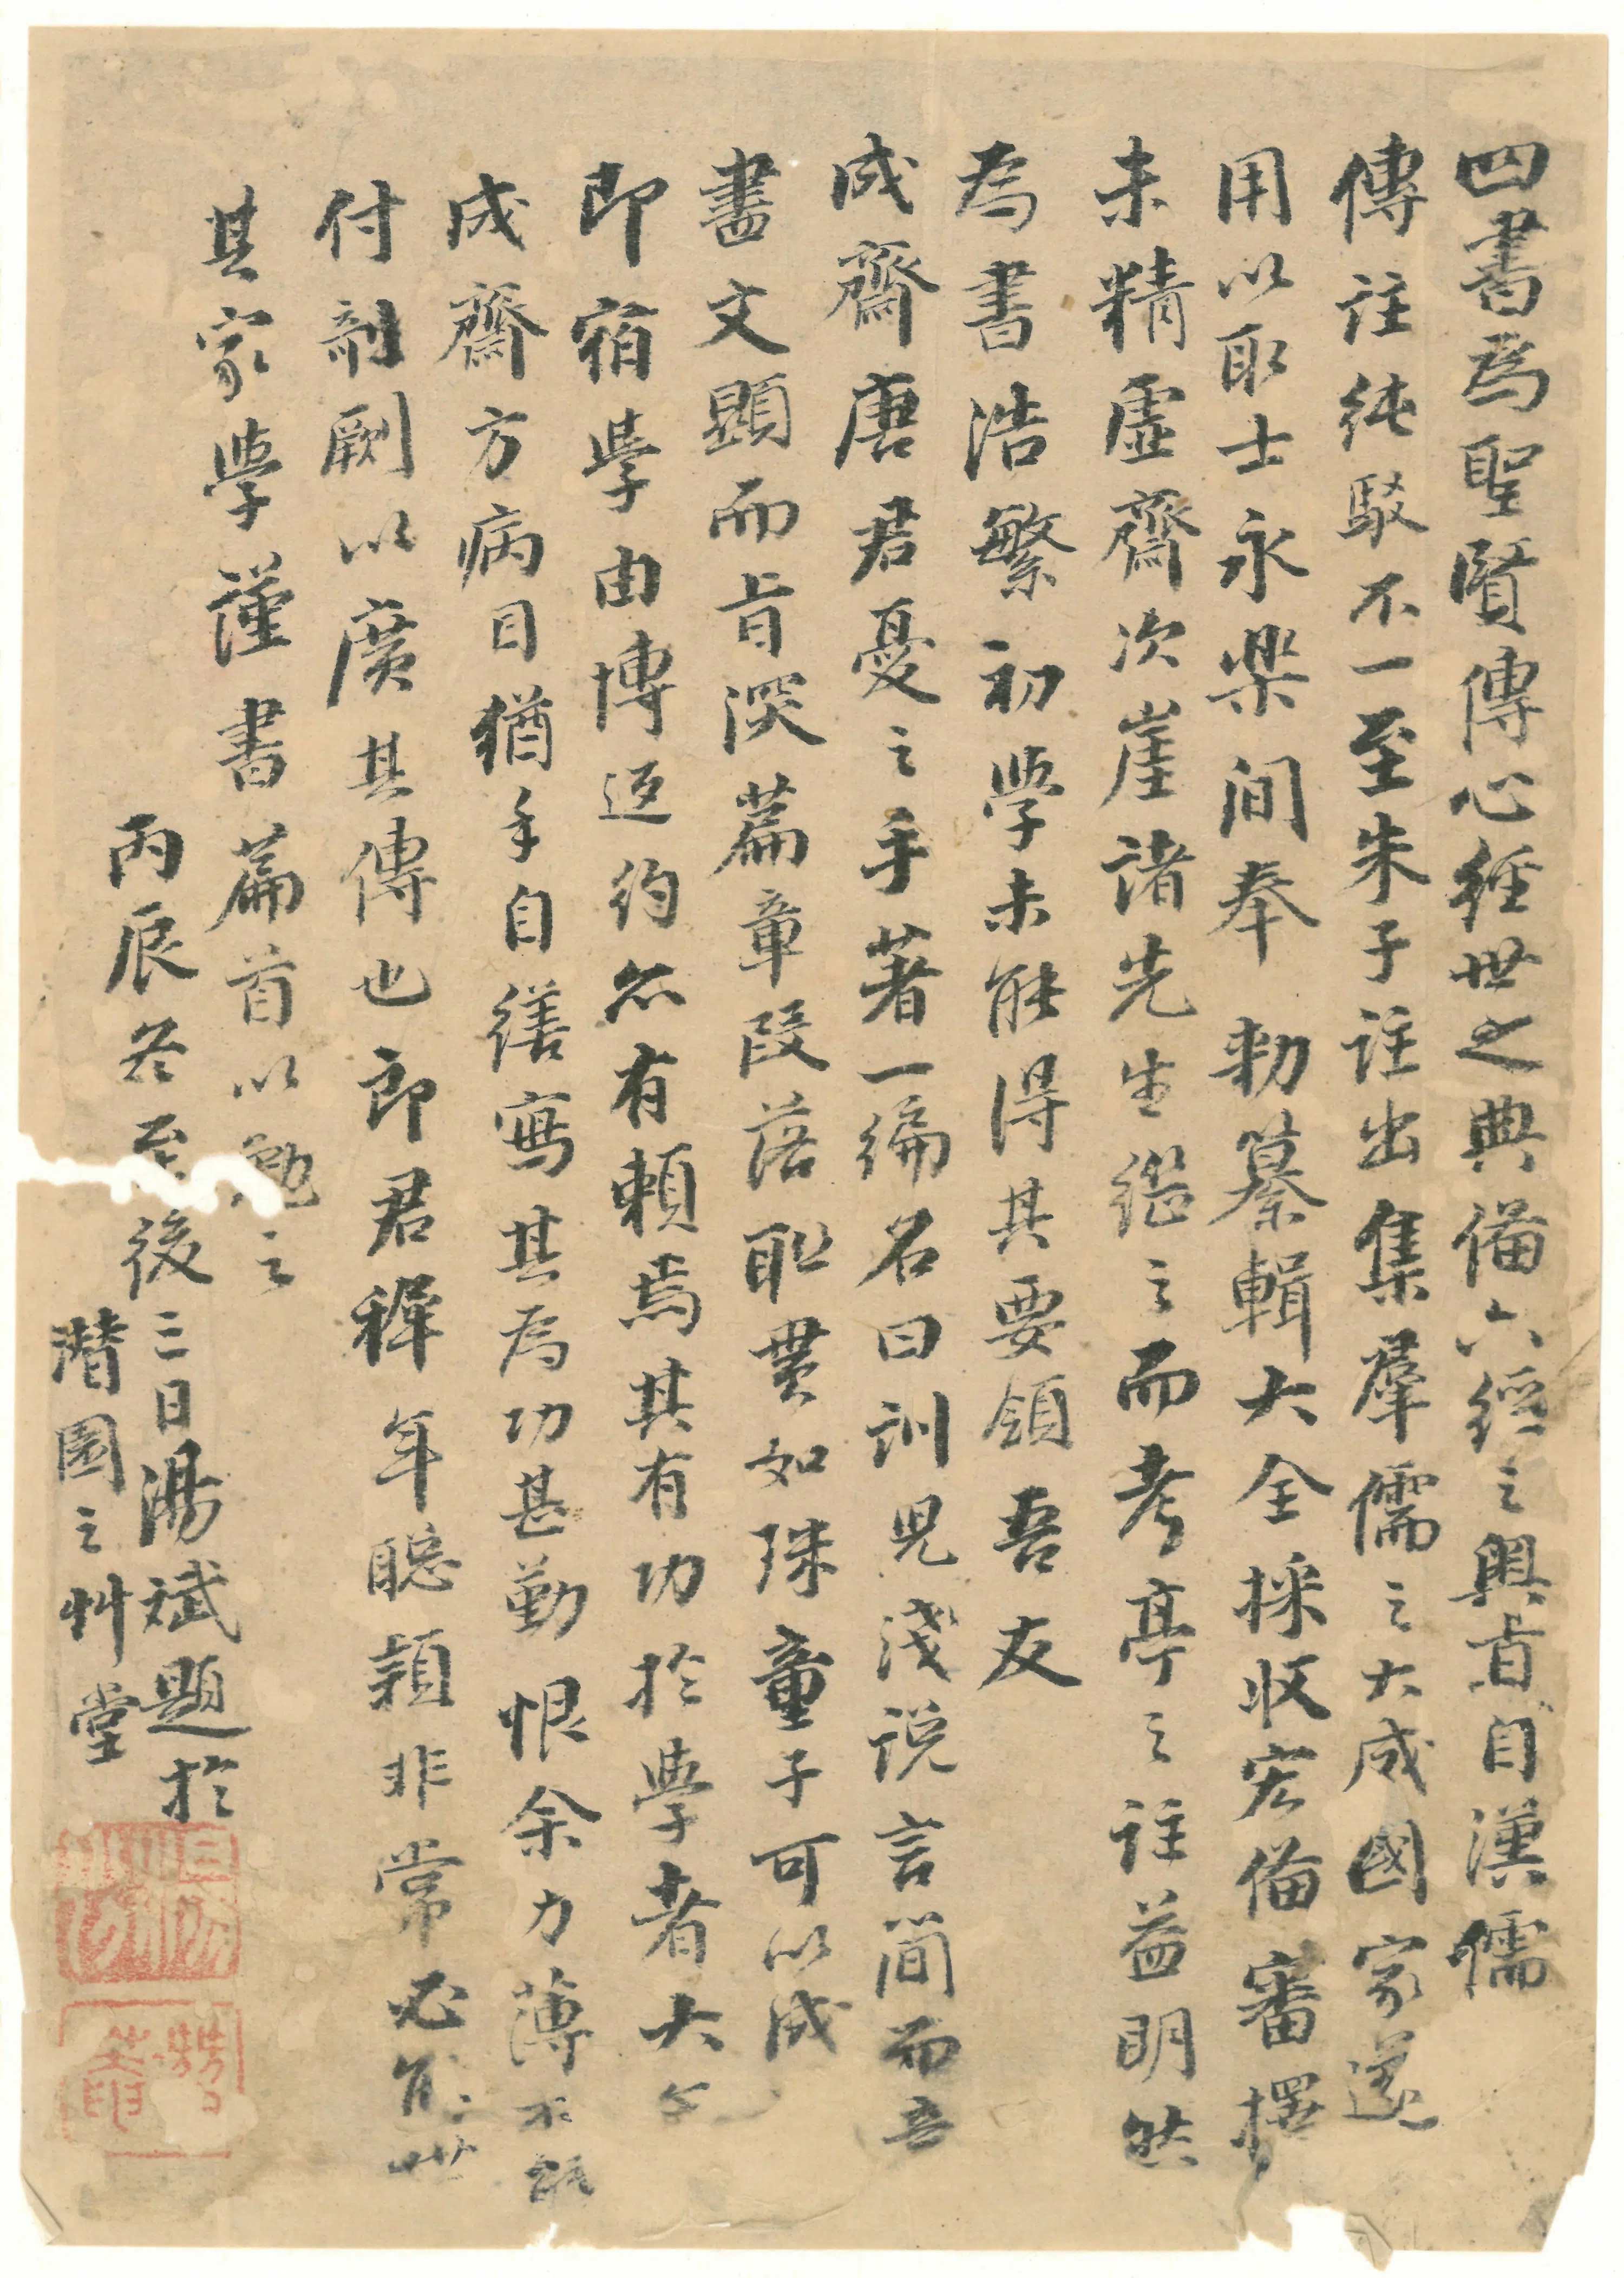 四書爲聖賢傳心經世之典備六經之奧旨自漢儒
傳註純駁不一至朱子註出集羣儒之大成國家遂
用以取士永樂间奉勅纂輯大全採收宏俻審擇
未精虛齋次崖諸先生繼之而考亭之註益明然
為書浩繁初學未能得其要領吾友
成齋唐君憂之手著一編名曰訓兒淺説言简而意
盡文顯而旨深篇章段落聯貫如珠童子可以成
即宿學由博返約亦有賴焉其有功於學者大
成齋方病目猶手自繕寫其為功甚勤恨余力薄不能
付剞劂以廣其傳也郎君穉年聰穎非常必能世
其家學謹書篇首以勉之
丙辰冬至後三日湯斌題於
潛園之艸堂